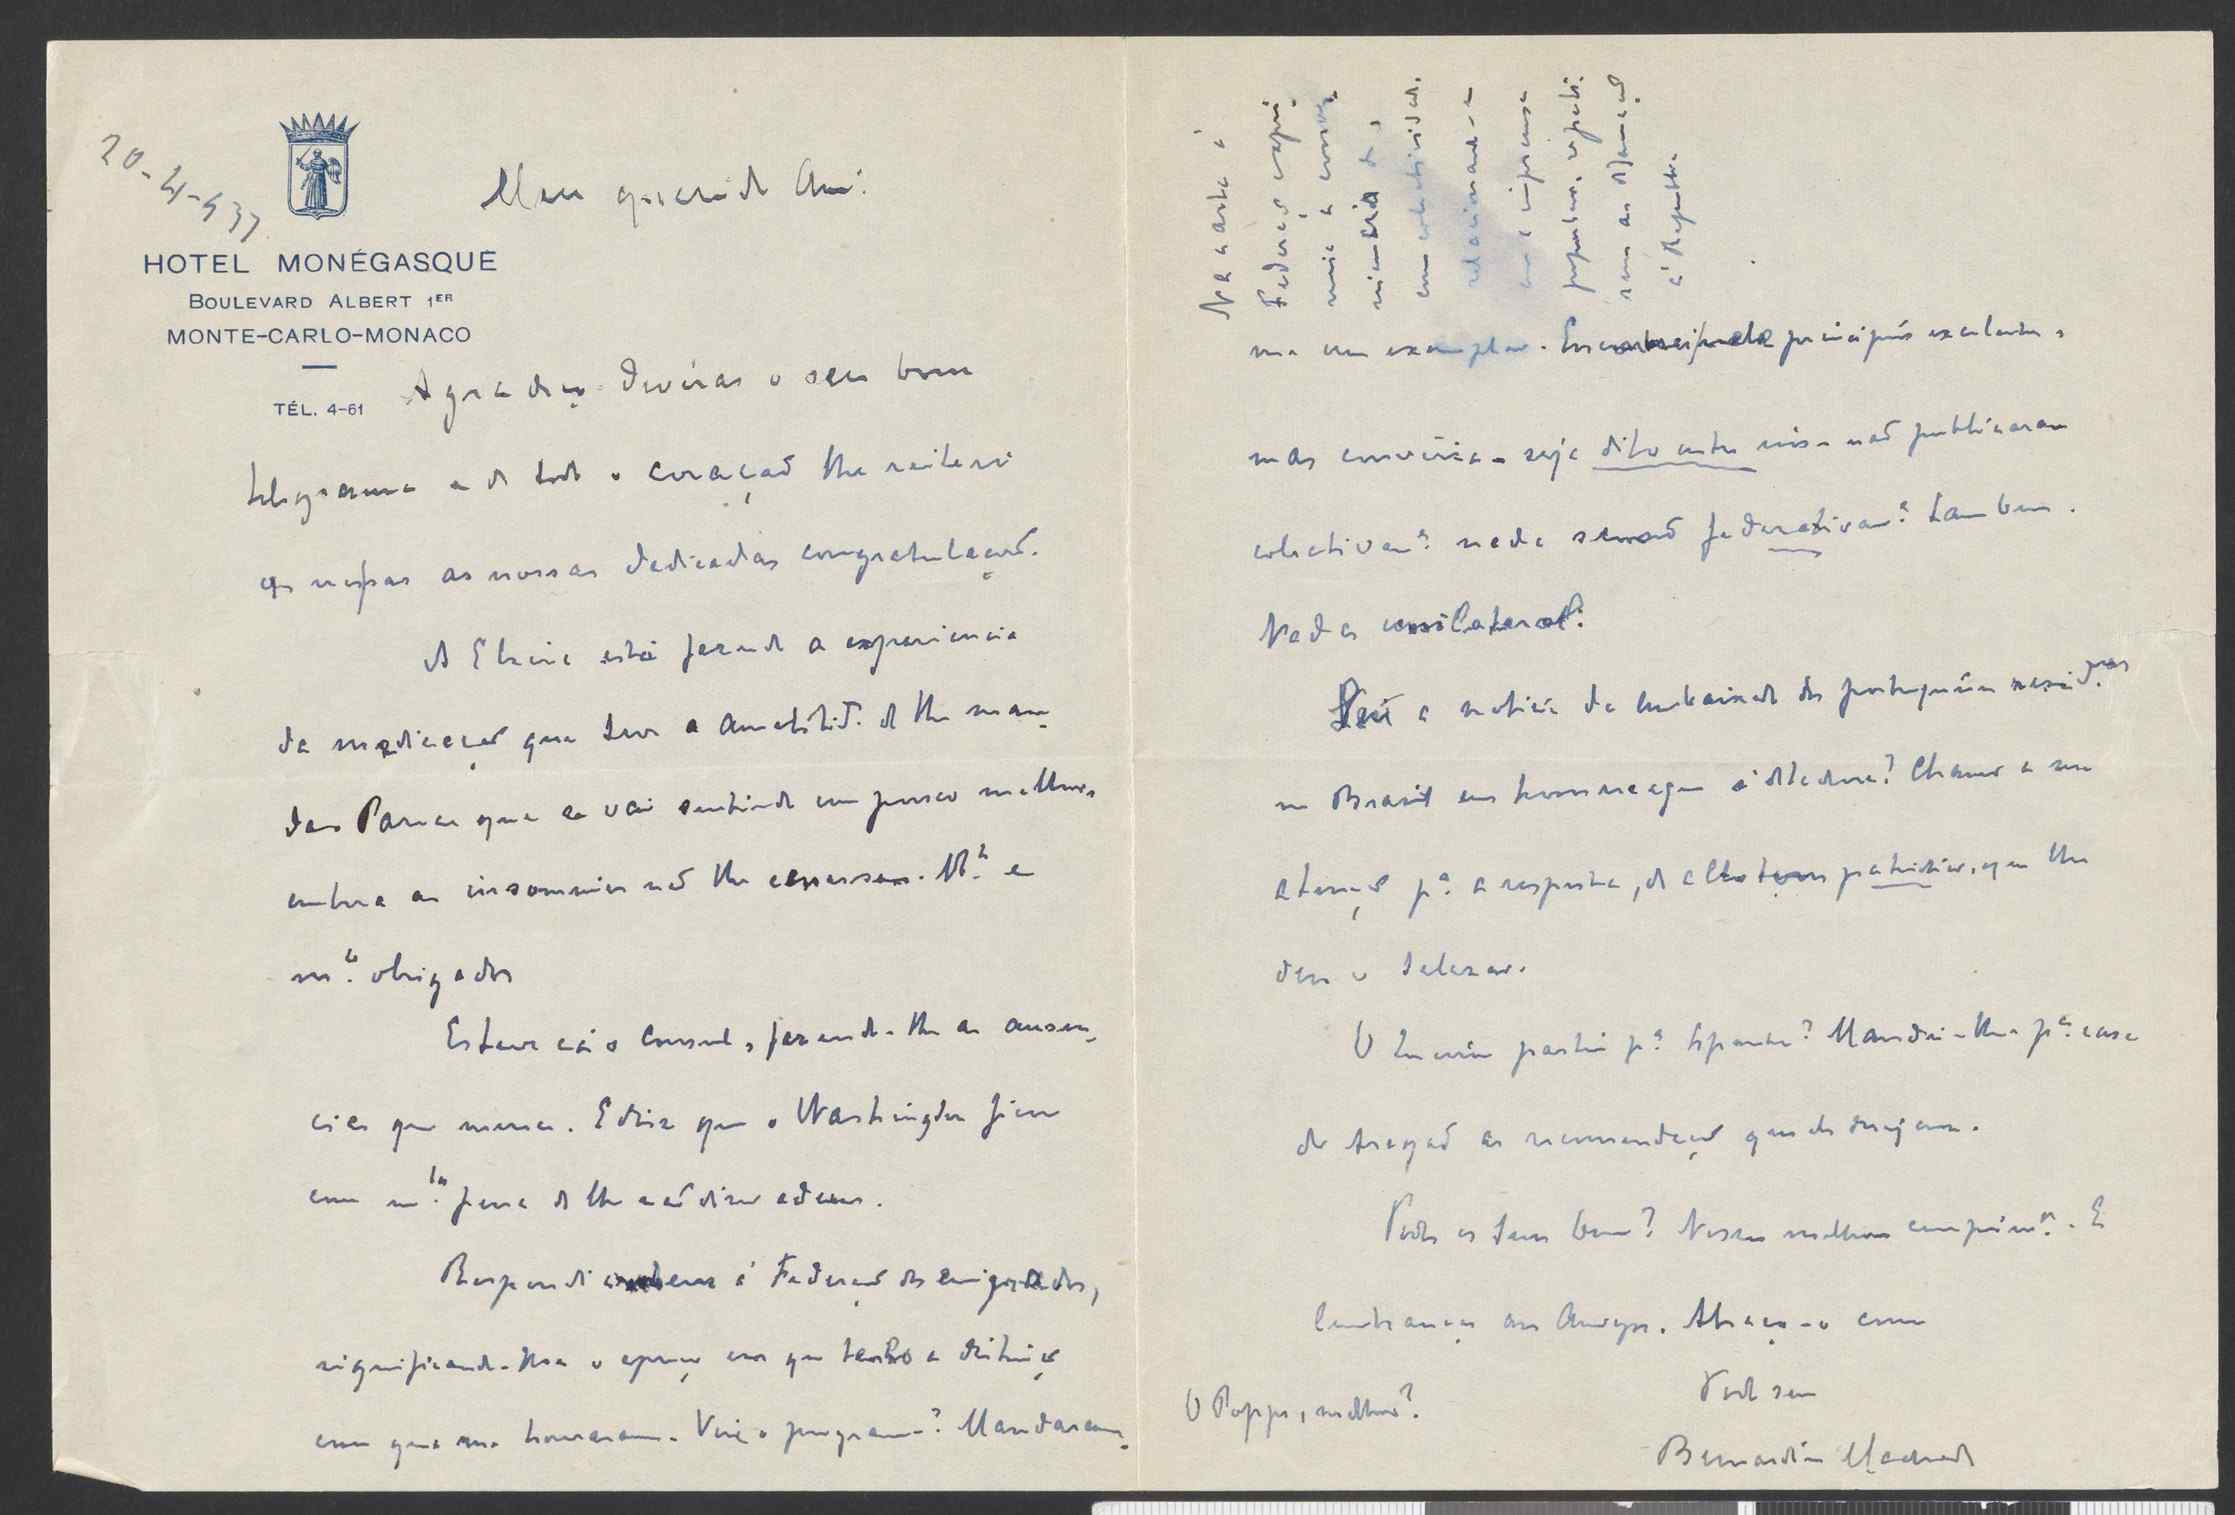 20-4-937
HOTEL MONÉGASQUE
BOULEVARD ALBERT 1ER
MONTE-CARLO-MONACO
TÉL. 4-61
Meu querido Amº:
Agradeço devéras o seu bom
telegramma e de todo o coração lhe reitero
as nossas dedicadas congratulações.
A Elzira está fazendo a experiencia
da medicação que teve a amabilidᵉ de lhe man-
dar. Parece que se vai sentindo um pouco melhor,
embora as insomnias não lhe cessassem. Mᵗᵒ e
mᵗᵒ obrigados
Esteve cá o Consul, fazendo-lhe as ausen-
cias que merece. E disse que o Washington ficou
com mᵗᵃ pena de lhe não dizer adeus.
Respondi á Federação dos Emigrados,
significando-lhe o apreço em que tenho a distinção
com que me honraram. Viu o programma? Mandaram-
me um exemplar. principios excelentes,
mas conviria - seja dito entre nós - não publicaram
colectivamᵗᵉ nada senão federativamᵗᵉ tambem.
Nada unilateral.
Leu a noticia da embaixada dos portuguêses residᵗᵉˢ
no Brasil em homenagem á ditadura? Chamo a sua
atenção pᵃ a resposta, de alto tom patriotico, que lhe
deu o Salazar.
O partiu pᵃ Espanha? Mandei-lhe pᵃ casa
do Aragão as recomendações que desejava.
Todos os seus bem? Nossos melhores cumprimᵗᵒˢ. E
lembranças aos Amigos. Abraça-o com
Todo seu
Bernardino Machado
O Poppe, melhor?
Na carta á
Federação expri-
mia a
em colectividade,
relacionando-se
com a imprensa
popular,
sem as
á Republica